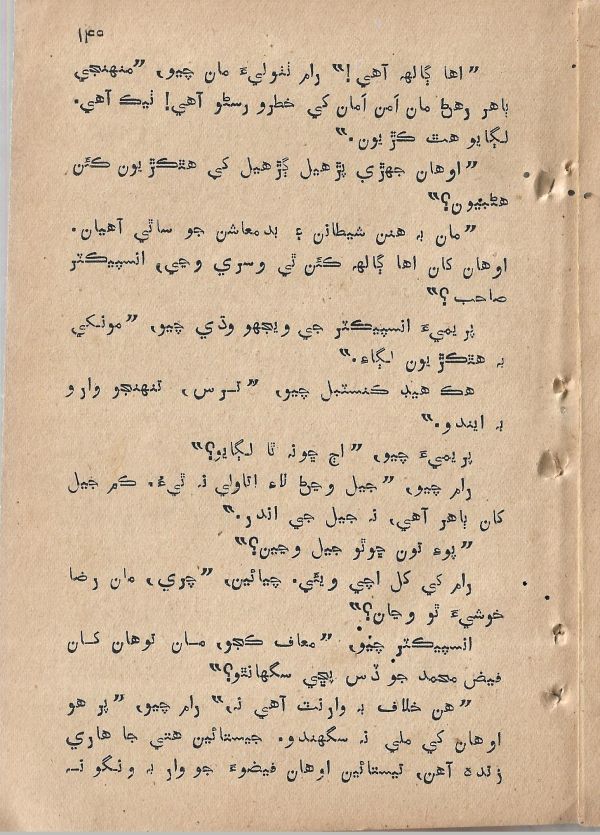 ۱۴۰
”اها ڳالهہ آهي!“ رام ٺٺوليءَ مان چيو، ”منهنجي
ٻاهر رهڻ مان اَمن اَمان کي خطرو رسڻو آهي! ٺيڪ آهي.
لڳايو هٿ ڪڙيون.“
”اوهان جهڙي پڙهيل ڳڙهيل کي هٿڪڙيون ڪئن
هڻبيون؟“
”مان بہ هنن شيطانن ۽ بدمعاشن جو ساٿي آهيان.
اوهان کان اها ڳالهہ ڪئن ٿي وسري وڃي، انسپيڪٽر
صاحب؟“
پريميءَ انسپيڪٽر جي ويجهو وڌي چيو، ”مونکي
بہ هٿڪڙيون لڳاءِ.“
هڪ هيڊ ڪنسٽبل چيو، ”ترس، تنهنجو وارو
بہ ايندو.“
پريميءَ چيو، ”اڄ ڇونہ ٿا لڳايو؟“
رام چيو، ”جيل وڃڻ لاءِ اتاولي نہ ٿيءُ. ڪم جيل
کان ٻاهر آهي، نہ جيل جي اندر.“
”پوءِ تون ڇوٿو جيل وڃين؟“
رام کي کل اچي ويئي. چيائين، ”چري، مان رضا
خوشيءَ ٿو وڃان؟“
انسپيڪٽر چيو، ”معاف ڪجو، مان توهان کان
فيض محمد جو ڏس پڇي سگهانٿو؟“
”هن خلاف بہ وارنٽ آهي نہ،“ رام چيو، ”پر هو
اوهان کي ملي نہ سگهندو. جيستائين هتي جا هاري
زنده آهن، تيستائين اوهان فيضوءَ جو وار بہ ونگو نہ